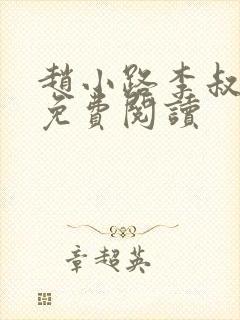 趙小路李叔
免費閱讀
章超英